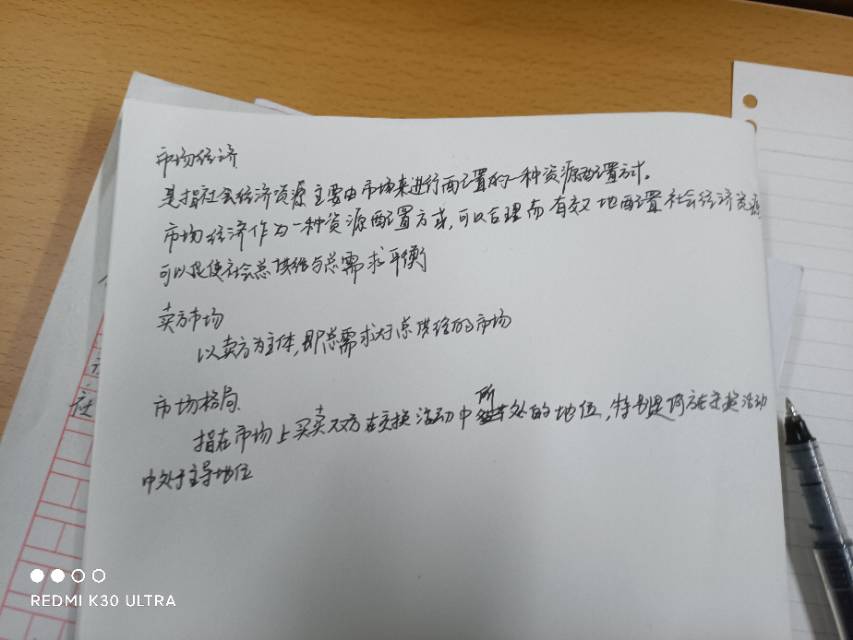 市场经济
是指社会经济资源主要由市场来进行而配置的一种资源配置方式。
市场经济作为一种资源配置方式,可以合理而有效地配置社会经济资源
可以促使社会总供给与总需求平衡
卖方市场
以卖方为主体,即总需求大于总供给的市场
市场格局
指在市场上买卖双方在交换活动中所处的地位,特别是何方在交换活动
中处于主导地位
REDMI K30 ULTRA